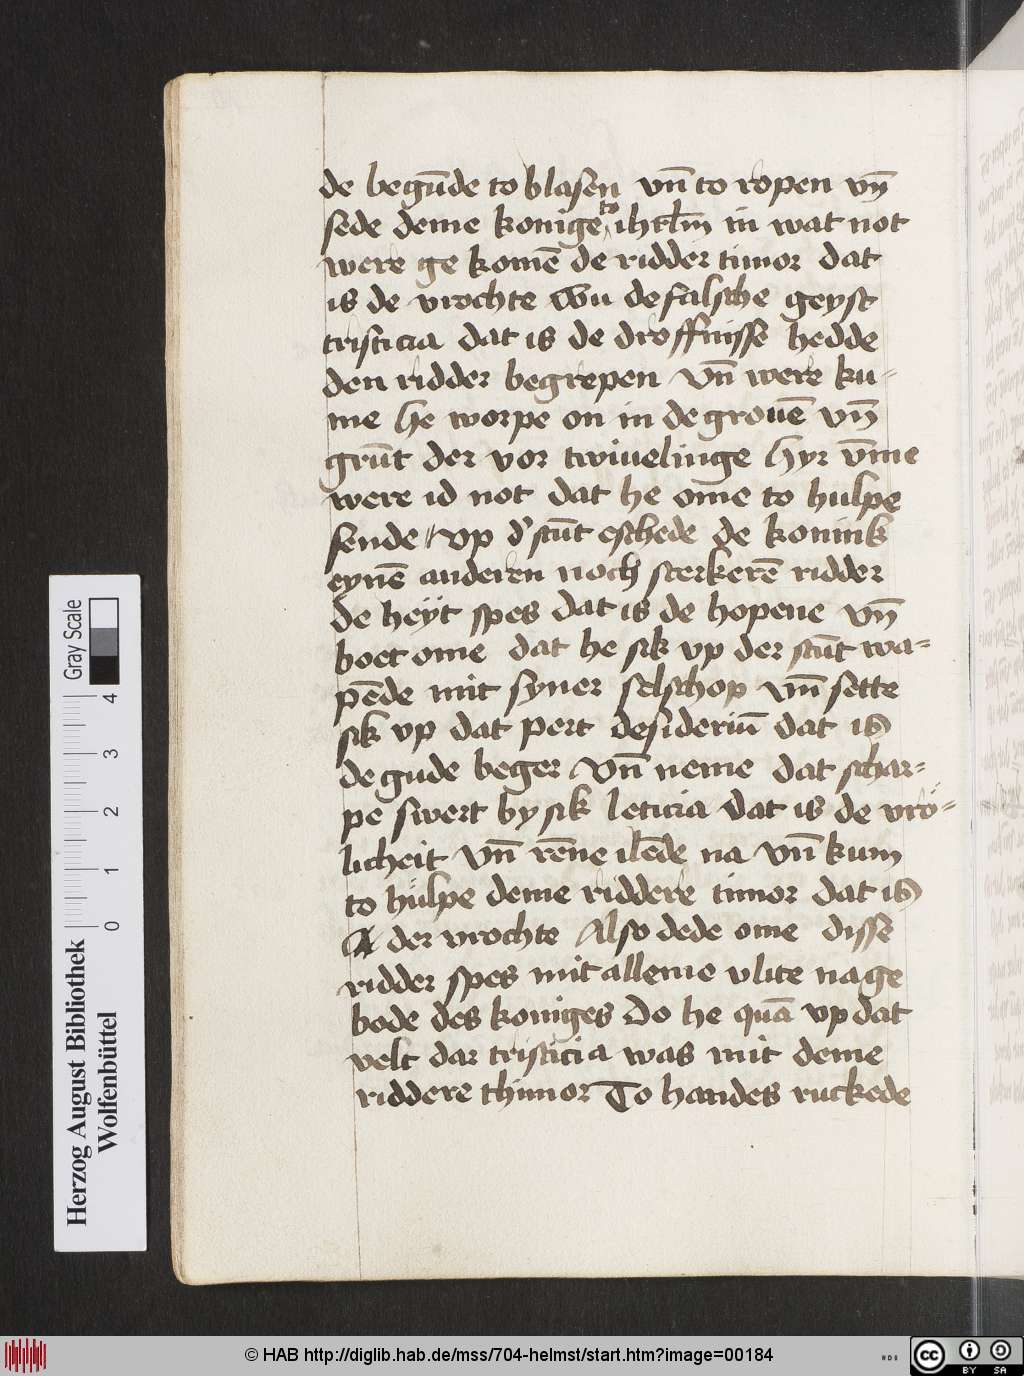 de begūde to blasen vn̄ to ropen vn̄
sede deme konige to ihrl̄m in wat not
were ge komē de ridder timor dat
is de vrochte Wu de falsche geyst
tristicia dat is de droffnisse hedde
den ridder begrepen Vn̄ were ku-
me he worpe on in de grouē vn̄
grūt der vor twiuelinge Hyr v̄me
were id not dat he ome to hulpe
sende Vp d' stūt eschede de konink
eynē anderen noch sterkerē ridder
de heyt spes dat is de hopene vn̄
boet ome dat he sik vp der stūt wa=
pēde mit syner selschop vn̄ sette
sik vp dat pert desideriū dat is
de gude beger Vn̄ neme dat schar=
pe swert by sik leticia dat is de vrö=
licheit Vn̄ rēne ilēde na Vn̄ kum
to hülpe deme riddere timor dat is
der vrochte Also dede ome disse
ridder spes mit alleme vlite na ge
bode des koniges Do he quā vp dat
velt dar tristicia was mit deme
riddere thimor To handes ruckede
Gray Scale
0 1 2 3 4
Herzog August Bibliothek
Wolfenbüttel
© HAB http://diglib.hab.de/mss/704-helmst/start.htm?image=00184
cc BY SA